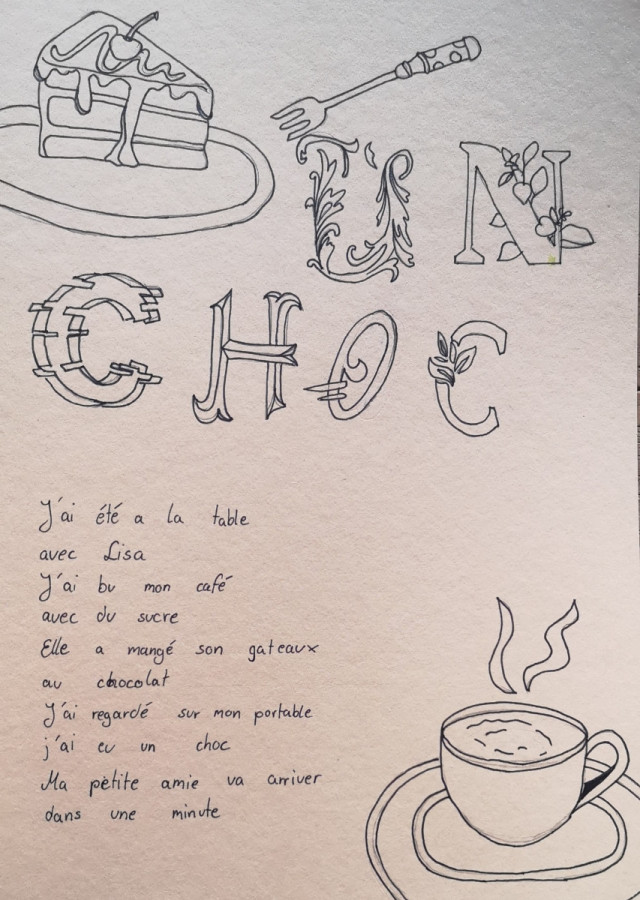 UN
CHOC
J'ai été a la table
avec Lisa
J'ai bu mon café
avec du sucre
Elle a mangé son gateaux
au chocolat
J'ai regardé sur mon portable
j'ai eu un choc
Ma pètite amie va arriver
dans une minute